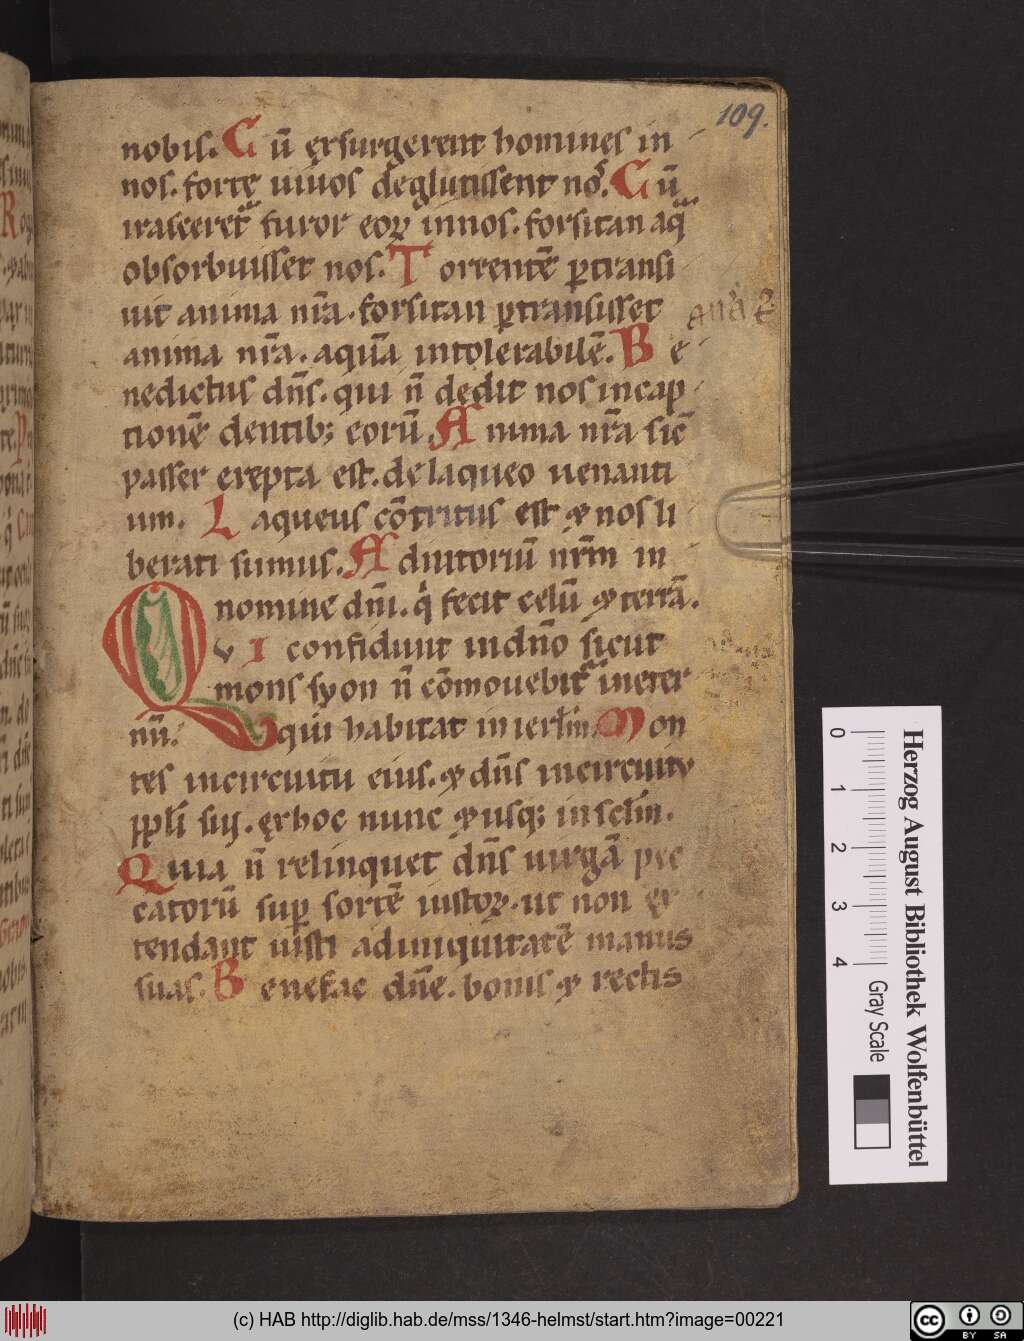 109.
nobis. Cū ęxsurgerent homines in
nos. fortę uiuos deglutissent nos. Cū
irasceret᷑ furor eoꝝ in nos. forsitan aqᷓ
obsorbuisset nos. Torrentē ꝑtransi
uit anima nr̄a. forsitan ꝑtransisset
anima nr̄a. aquā intolerabilē. Be
nedictus dn̄s. qui n̄ dedit nos incap
tionē dentib; eorū. Anima nr̄a sic̄
passer erepta est. de laqueo uenanti
um. Laqueus cōtritus est ⁊ nos li
berati sumus. Adiutoriū nr̄m in
nomine dn̄i. qͥ fecit celū ⁊ terrā.
QVI confidunt in dn̄o sicut
mons syon n̄ cōmouebit᷑ in eter
nū. qui habitat in ierl̄m. Mon
tes incircuitu eius. ⁊ dn̄s incircuitu
ppl̄i sui. ęxhoc nunc ⁊ usq; insc̄lm̄.
Quia n̄ relinquet dn̄s uirgā pec
catorū suꝑ sortē iustoꝝ. ut non ex
tendant iusti adiniquitatē manus
suas. Benefac dn̄e. bonis ⁊ rectis
0 1 2 3 4
Gray Scale
Herzog August Bibliothek Wolfenbüttel
(c) HAB http://diglib.hab.de/mss/1346-helmst/start.htm?image=00221
cc BY SA